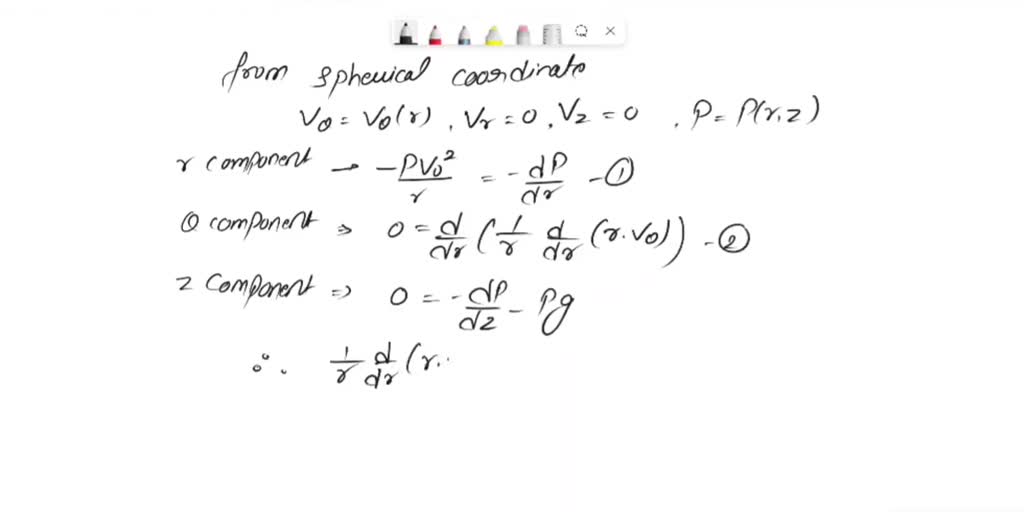 from spherical coordinate
Vθ = Vθ(r), Vr = 0, Vz = 0, P = P(r,z)
r component → -ρVθ²/r = -dP/dr -①
θ component ⇒ 0 = d/dr (1/r d/dr (r.Vθ)) -②
z component ⇒ 0 = -dP/dz - ρg
∴ 1/r d/dr (r.